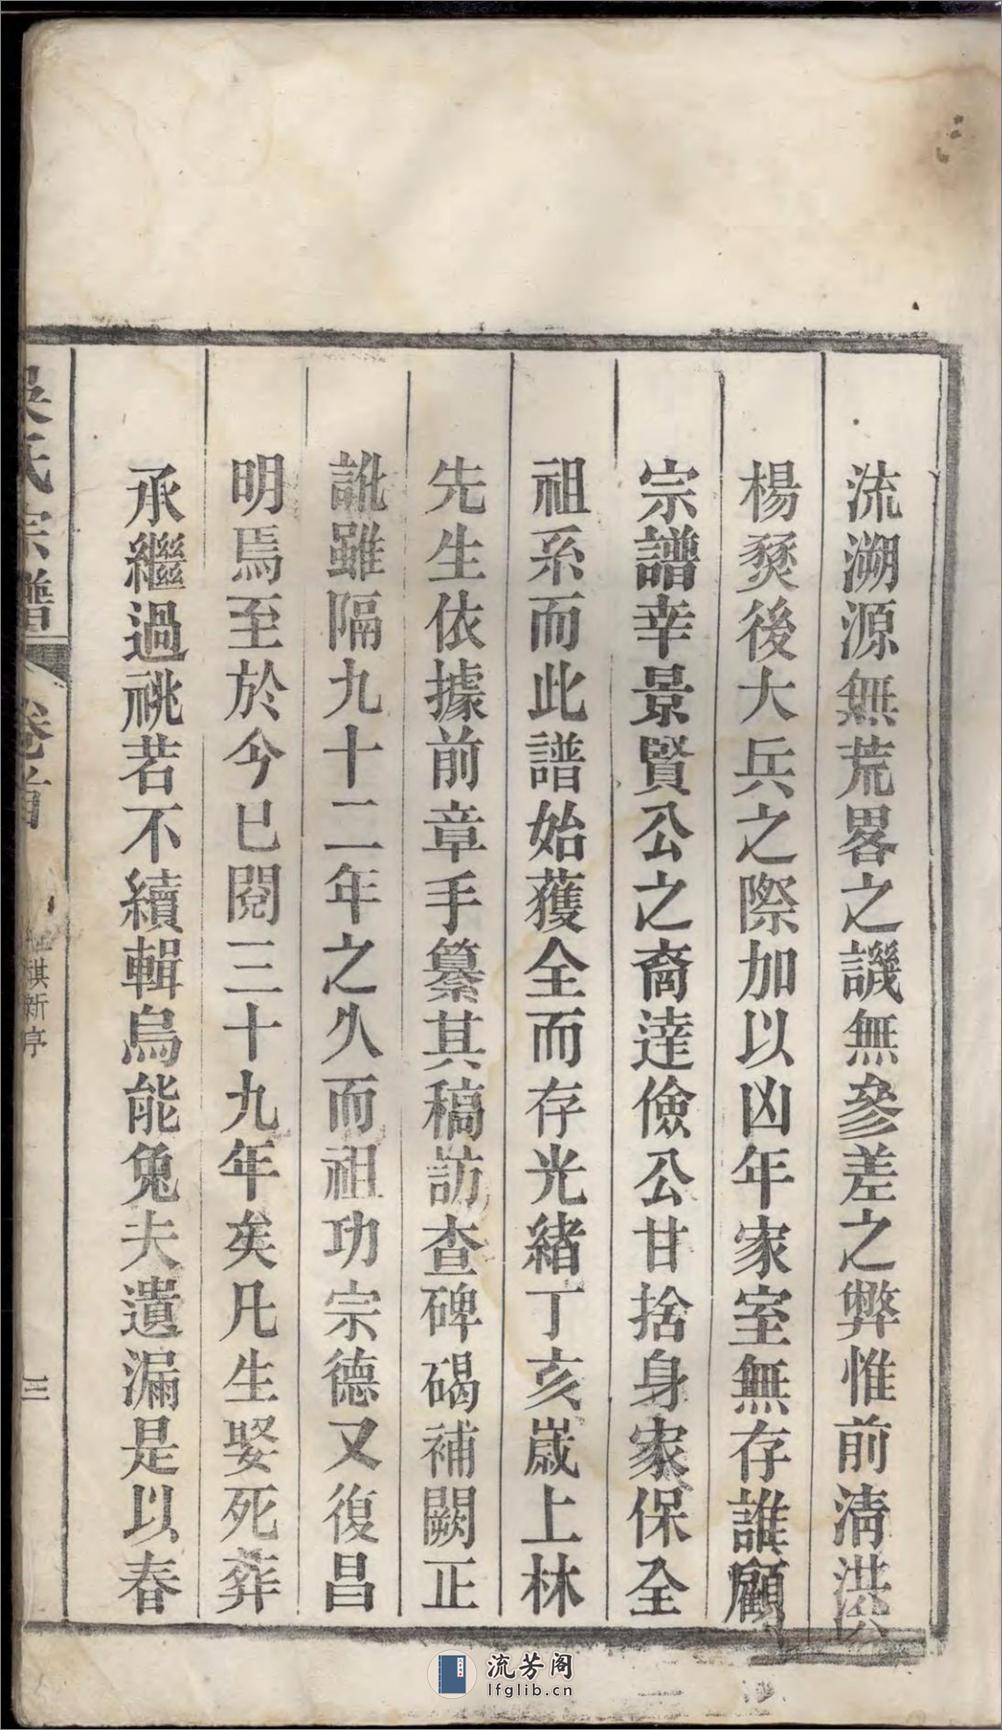 流溯源無荒畧之譏無參差之弊惟前清洪
楊燹後大兵之際加以凶年家室無存誰顧
宗譜幸景賢公之裔達儉公甘捨身家保全
祖系而此譜始獲全而存光緒丁亥嵗上林
先生依據前章手纂其稿訪查碑碣補闕正
訛雖隔九十二年之久而祖功宗德又復昌
明焉至於今已閱三十九年矣凡生娶死葬
承繼過祧若不續輯烏能免夫遺漏是以春
吳氏宗譜
卷首
祺新序
三
流芳阁
lfglib.cn